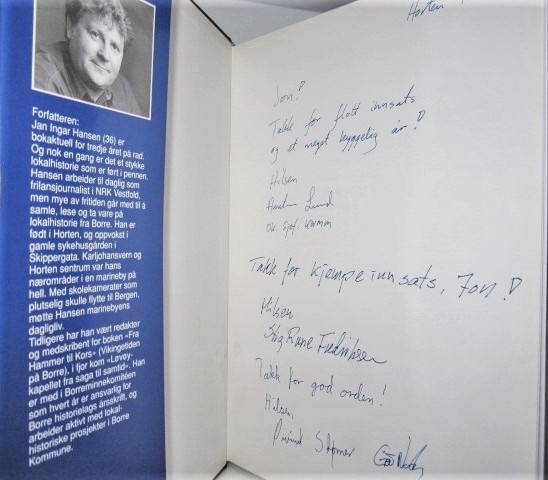 Forfatteren:
Jan Ingar Hansen (36) er
bokaktuell for tredje året på rad.
Og nok en gang er det et stykke
lokalhistorie som er ført i pennen.
Hansen arbeider til daglig som
frilansjournalist i NRK Vestfold,
men mye av fritiden går med til å
samle, lese og ta vare på
lokalhistorie fra Borre. Han er
født i Horten, og oppvokst i
gamle sykehusgården i
Skippergata. Karljohansvern og
Horten sentrum var hans
nærområder i en marineby på
hell. Med skolekamerater som
plutselig skulle flytte til Bergen,
møtte Hansen marinebyens
dagligliv.
Tidligere har han vært redaktør
og medskribent for boken «Fra
Hammer til Kors» (Vikingetiden
på Borre), i fjor kom «Løvøy-
kapellet fra saga til samtid». Han
er med i Borreminnekomitéen
som hvert år er ansvarlig for
Borre historielags årsskrift, og
arbeider aktivt med lokal-
historiske prosjekter i Borre
Kommune.
Horten
Jon!
Takk for flott innsats
og et meget hyggelig år!
Hilsen
Lund
Takk for kjempeinnsats, Jon!
Hilsen
Stig Rune Fredriksen
Takk for god orden!
Hilsen